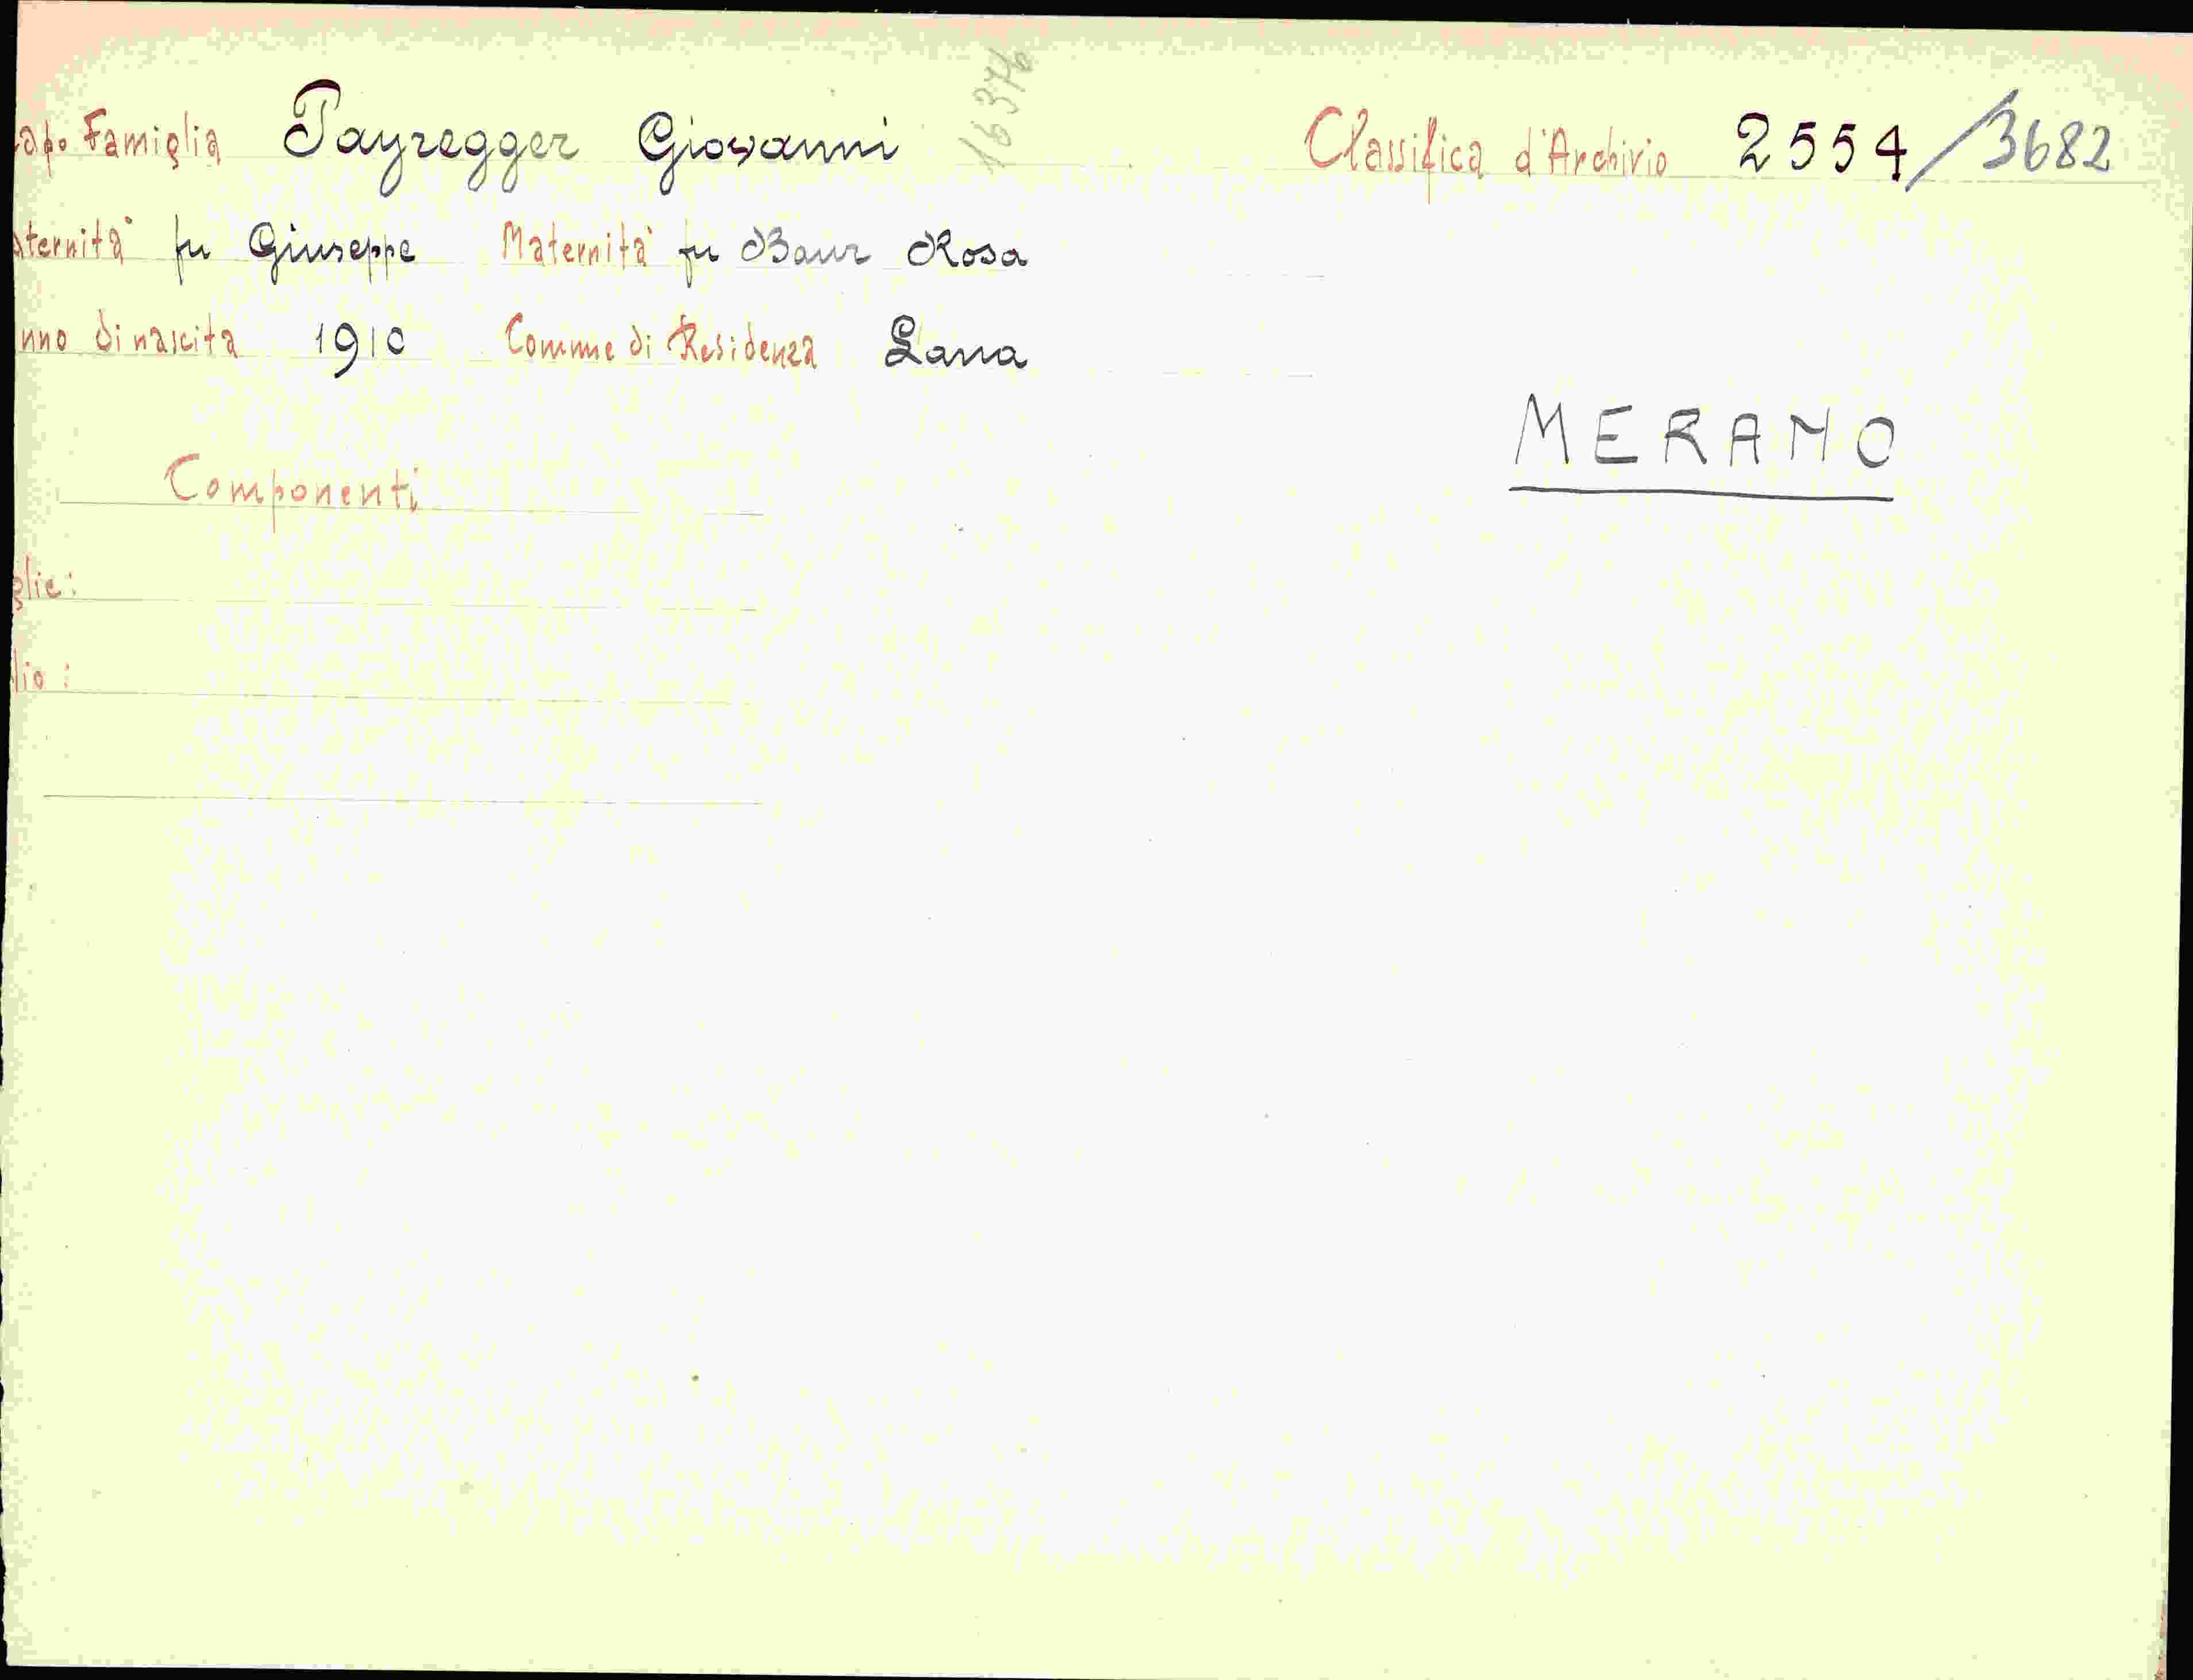 apo Famiglia Payregger Giovanni 16376 Classifica d'Archivio 2554/3682
aternità fu Giuseppe Maternità fu Baur Rosa
nno di nascita 1910 Comune di Residenza Lana
MERANO
Componenti
glie:
lio: